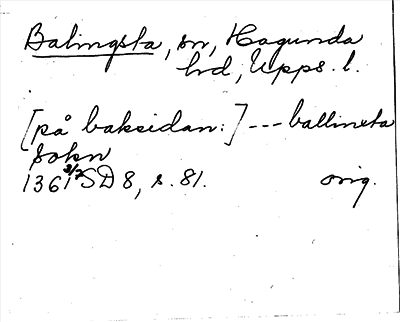 Balingsta, sn, Hagunda
hd, Upps. l.
[på baksidan:] --- ballinsta
sokn
1361 3/2 SD 8, s. 81. orig.